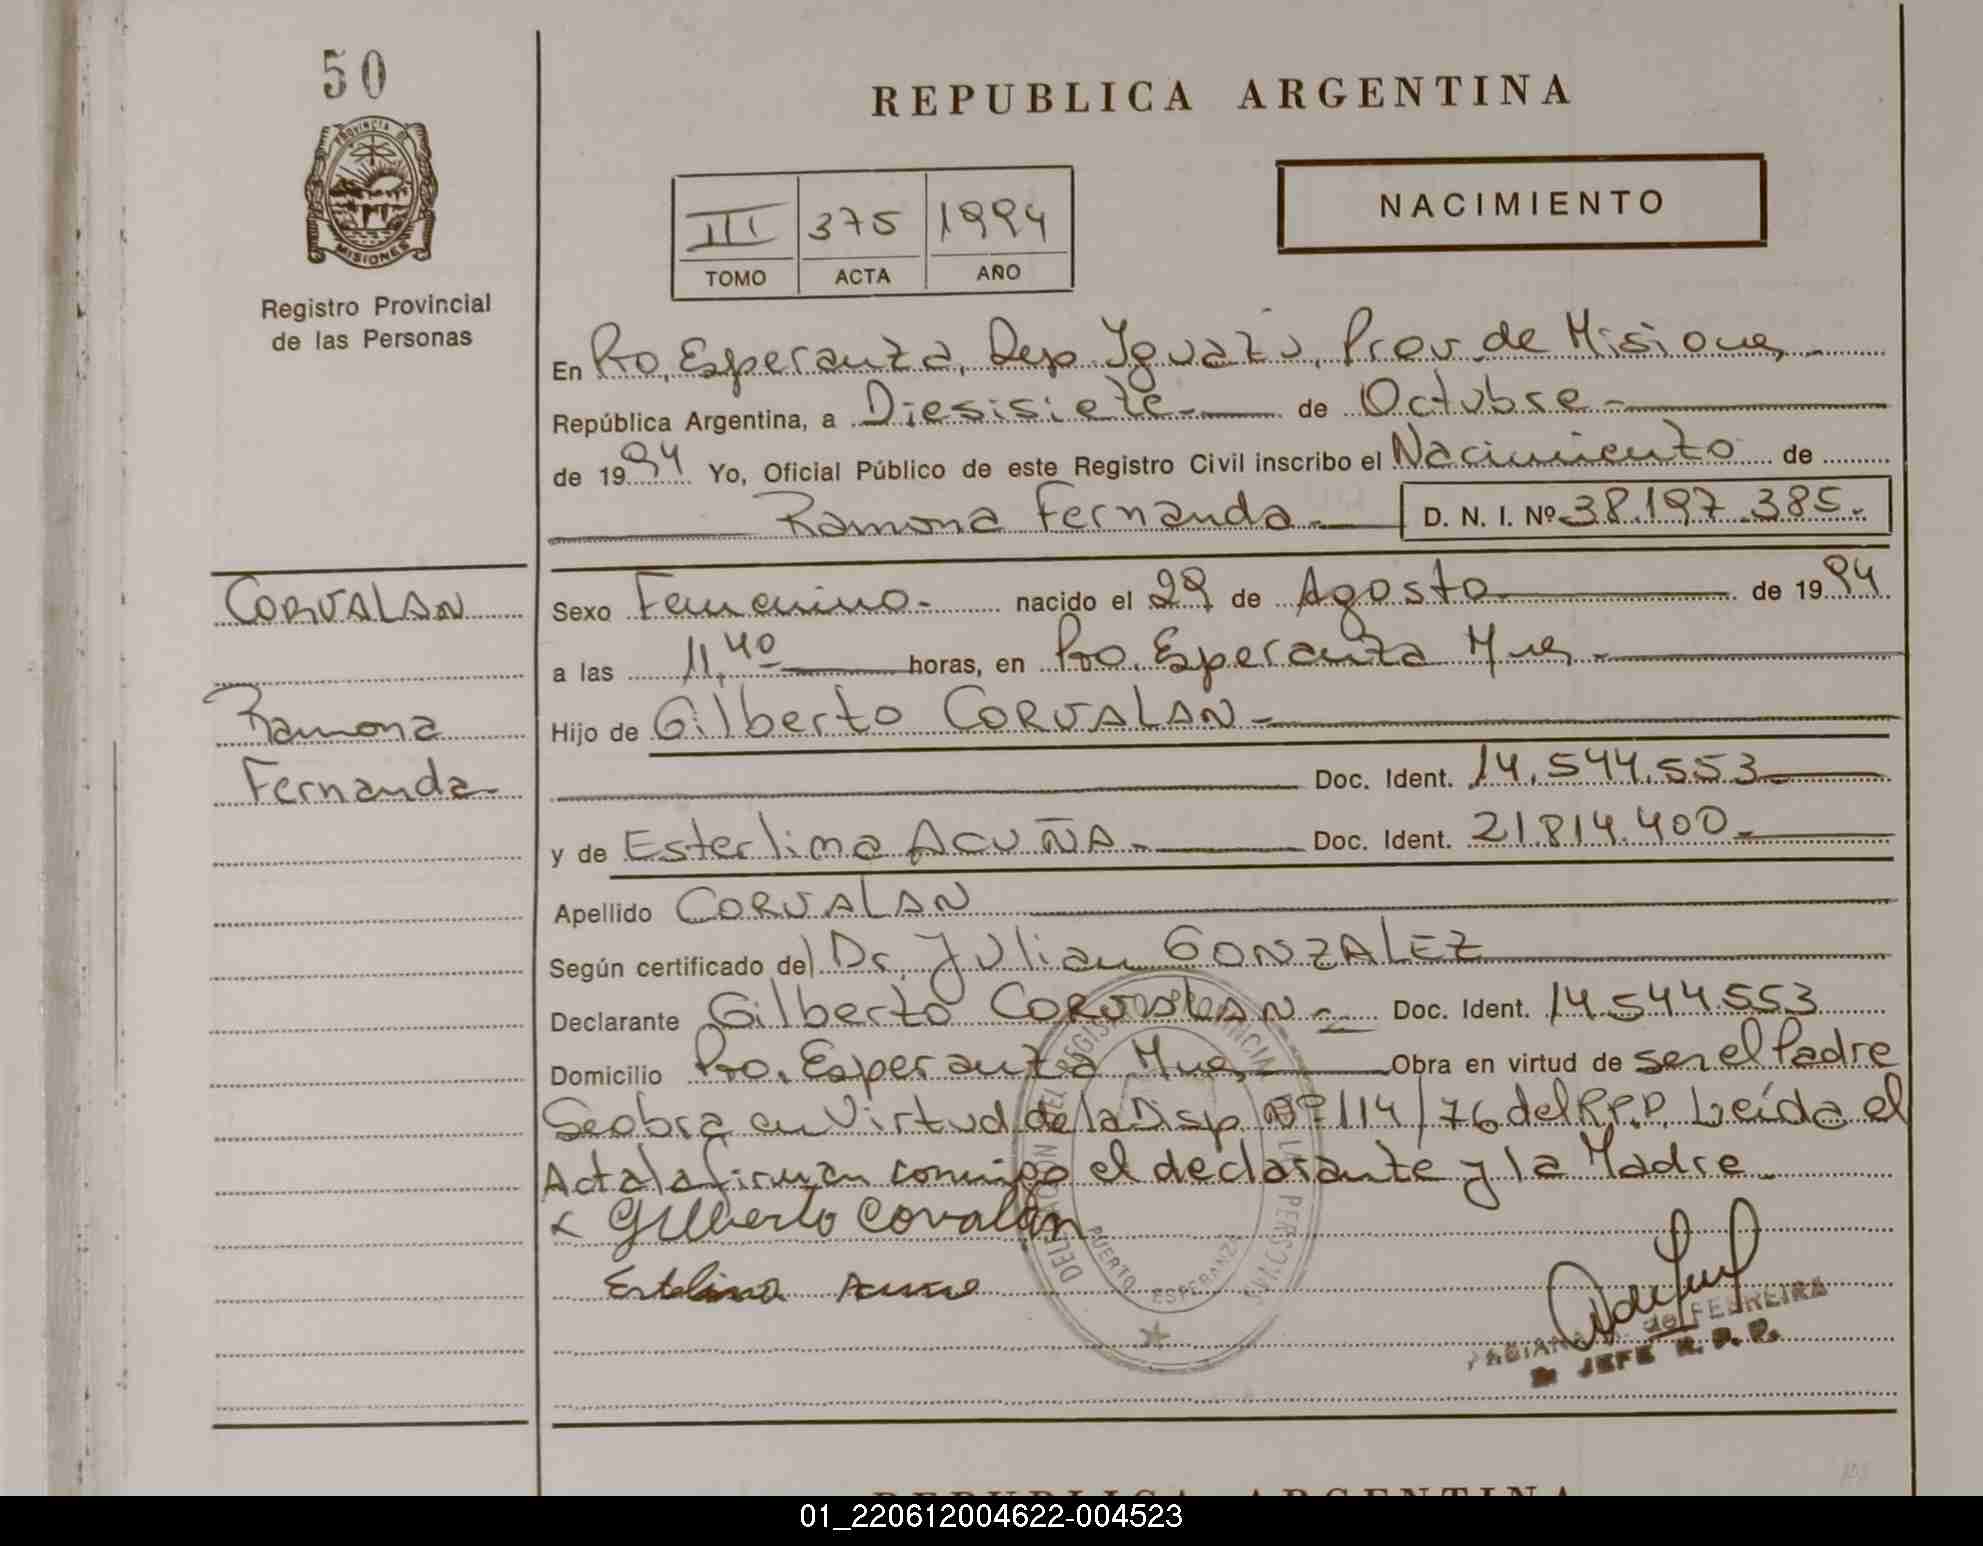 50
PROVINCIA DE
MISIONES
Registro Provincial
de las Personas
REPUBLICA ARGENTINA
III 375 1994
TOMO ACTA AÑO
NACIMIENTO
En Pto. Esperanza, Dep. Iguazú, Prov. de Misiones
República Argentina, a Diesisiete de Octubre
de 1994 Yo, Oficial Público de este Registro Civil inscribo el Nacimiento de
Ramona Fernanda D. N. I. Nº 38.197.385.
CORVALAN
Sexo Femenino nacido el 29 de Agosto de 1994
a las 11,40 horas, en Pto. Esperanza Mnes
Ramona
Fernanda
Hijo de Gilberto CORVALAN
Doc. Ident. 14.544.553
y de Esterlima ACUÑA Doc. Ident. 21.814.400
Apellido CORVALAN
Según certificado del Dr. Julian GONZALEZ
Declarante Gilberto CORVALAN Doc. Ident. 14.544.553
Domicilio Pto. Esperanza Mnes Obra en virtud de ser el Padre
Se obra en Virtud de la Disp. Nº 114/76 del R.P.P. Leída el
Acta la firman conmigo el declarante y la Madre
Gilberto Corvalan
DELEGACION DEL REGISTRO PROVINCIAL DE LAS PERSONAS
PUERTO ESPERANZA
de FERREIRA
JEFE R. P. P.
REPUBLICA ARGENTINA
01_220612004622-004523